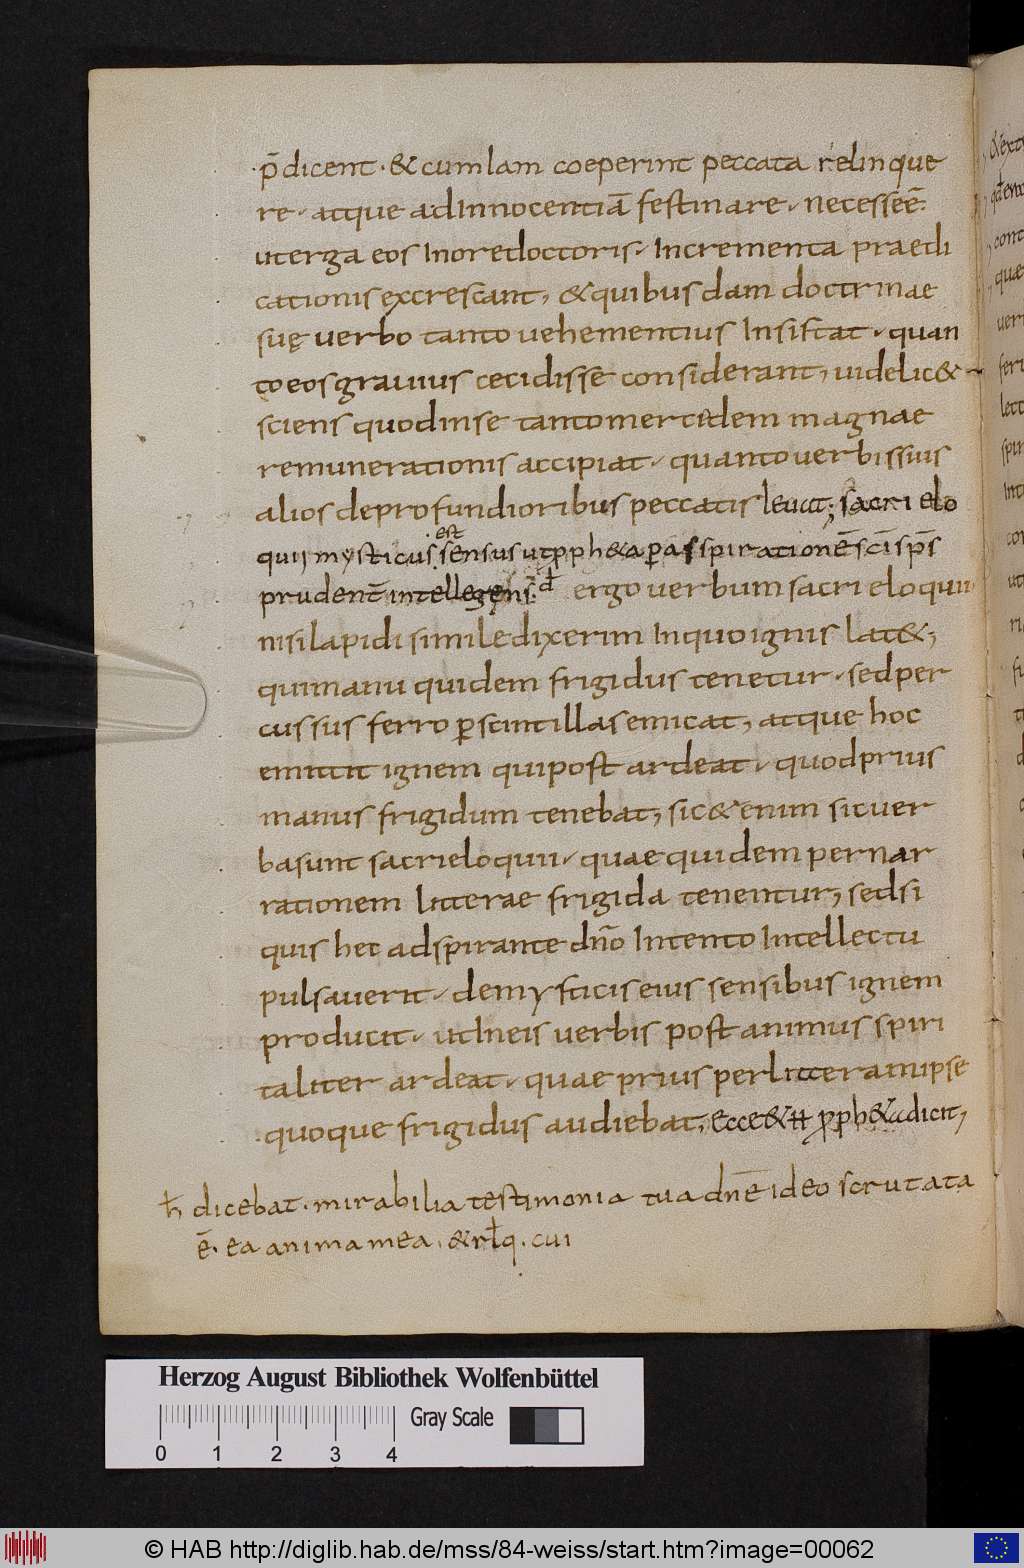 ·p̄dicent · & cum Iam coeperint peccata relinque
re · atque ad Innocentiā festinare · necesse ē.
ut erga eos In ore doctoris · Incrementa praedi
cationis excrescant, & quibusdam doctrinae
suę verbo tanto vehementius Insistat · quan
to eos gravius cecidisse considerant, videlic&
sciens quod inse tanto mercidem magnae
remunerationis accipiat · quanto verbis suis
alios de profundioribus peccatis levat; sacri elo
quii mysticus · est sensus ut p pph&a p aspirationē sc̄i sp̄s
prudent̄ intellegens. hd ergo verbum sacri eloquii
nisi lapidi simile dixerim In quo ignis lat&,
qui manu quidem frigidus tenetur · sed per
cussus ferro p scintillas emicat, atque hoc
emittit ignem qui post ardeat · quod prius
manus frigidum tenebat, sic &enim sic ver
ba sunt sacri eloquii · quae quidem per nar
rationem litterae frigida tenentur, sed si
quis hec adspirante dn̄o Intento Intellectu
pulsaverit · de mysticis eius sensibus ignem
producit · ut In eis verbis post animus spiri
taliter ardeat · quae prius per litteram ipse
· quoque frigidus audiebat, ecce & pph&a dicit,
h̄ dicebat · mirabilia testimonia tua dn̄e ideo scrutata
ē. ea anima mea · & rlq · cui
Herzog August Bibliothek Wolfenbüttel
Gray Scale
0 1 2 3 4
© HAB http://diglib.hab.de/mss/84-weiss/start.htm?image=00062